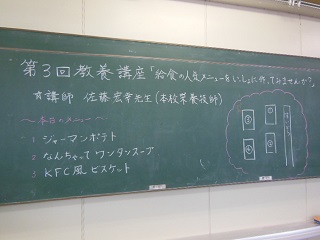 第3回教養講座「給食の人気メニューをいっしょに作ってみませんか?」
講師 佐藤宏幸先生(本校栄養技師)
〜本日のメニュー〜
1 ジャーマンポテト
2 なんちゃってワンタンスープ
3 KFC風ビスケット